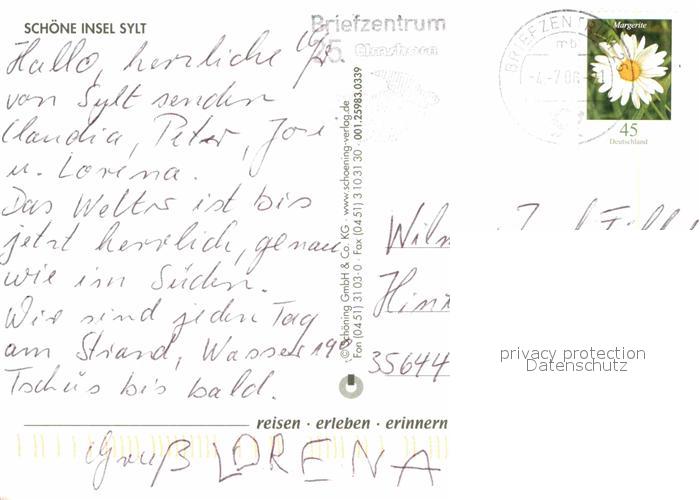 SCHÖNE INSEL SYLT
Hallo, herzliche
von Sylt senden
Claudia, Peter, Josi
u. Lorena.
Das Wetter ist bis
jetzt herrlich, genau
wie im Süden.
Wir sind jeden Tag
am Strand, Wasser 19°
Tschüs bis bald.
reisen · erleben · erinnern
Gruß LORENA
© Schöning GmbH & Co. KG · www.schoening-verlag.de
Fon (04 51) 31 03-0 · Fax (04 51) 3 10 31 30 · 001.25983.0339
Briefzentrum
25 Elmshorn
BRIEFZEN
mb
-4-7.06
Margerite
45
Deutschland
35644
privacy protection
Datenschutz